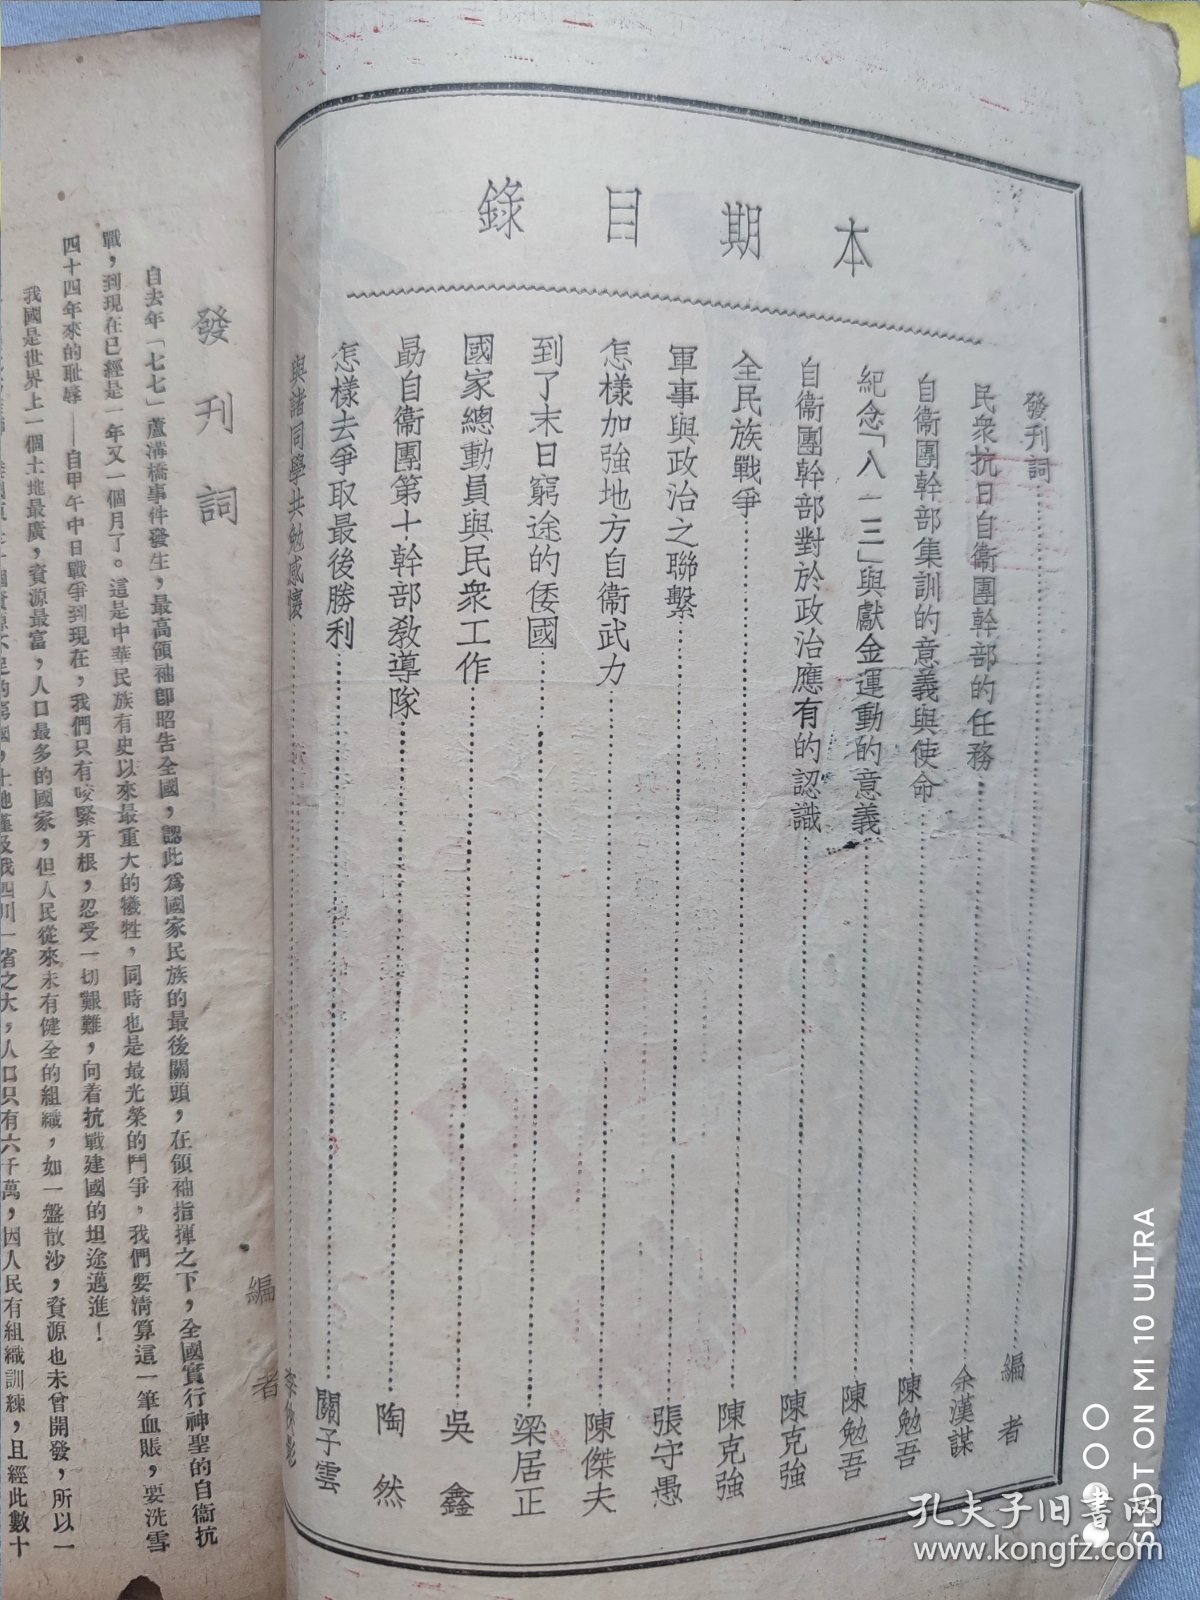 本期目錄
發刊詞⋯⋯編者
民衆抗日自衞團幹部的任務⋯⋯余漢謀
自衞團幹部集訓的意義與使命⋯⋯陳勉吾
紀念「八一三」與獻金運動的意義⋯⋯陳勉吾
自衞團幹部對於政治應有的認識⋯⋯陳克強
全民族戰爭⋯⋯陳克強
軍事與政治之聯繫⋯⋯張守愚
怎樣加強地方自衞武力⋯⋯陳傑夫
到了末日窮途的倭國⋯⋯梁居正
國家總動員與民衆工作⋯⋯吳鑫
勗自衞團第十幹部敎導隊⋯⋯陶然
怎樣去爭取最後勝利⋯⋯關子雲
與諸同學共勉感懷⋯⋯李
發刊詞
編者
自去年「七七」蘆溝橋事件發生，最高領袖卽昭告全國，認此爲國家民族的最後關頭，在領袖指揮之下，全國實行神聖的自衞抗
戰，到現在已經是一年又一個月了。這是中華民族有史以來最重大的犧牲，同時也是最光榮的鬥爭，我們要淸算這一筆血賬，要洗雪
四十四年來的耻辱——自甲午中日戰爭到現在，我們只有咬緊牙根，忍受一切艱難，向着抗戰建國的坦途邁進！
我國是世界上一個土地最廣，資源最富，人口最多的國家，但人民從來未有健全的組織，如一盤散沙，資源也未曾開發，所以一
土地僅及我四川一省之大，人口只有六千萬，因人民有組織訓練，且經此數十
孔夫子旧書网
www.kongfz.com
SHOT ON MI 10 ULTRA